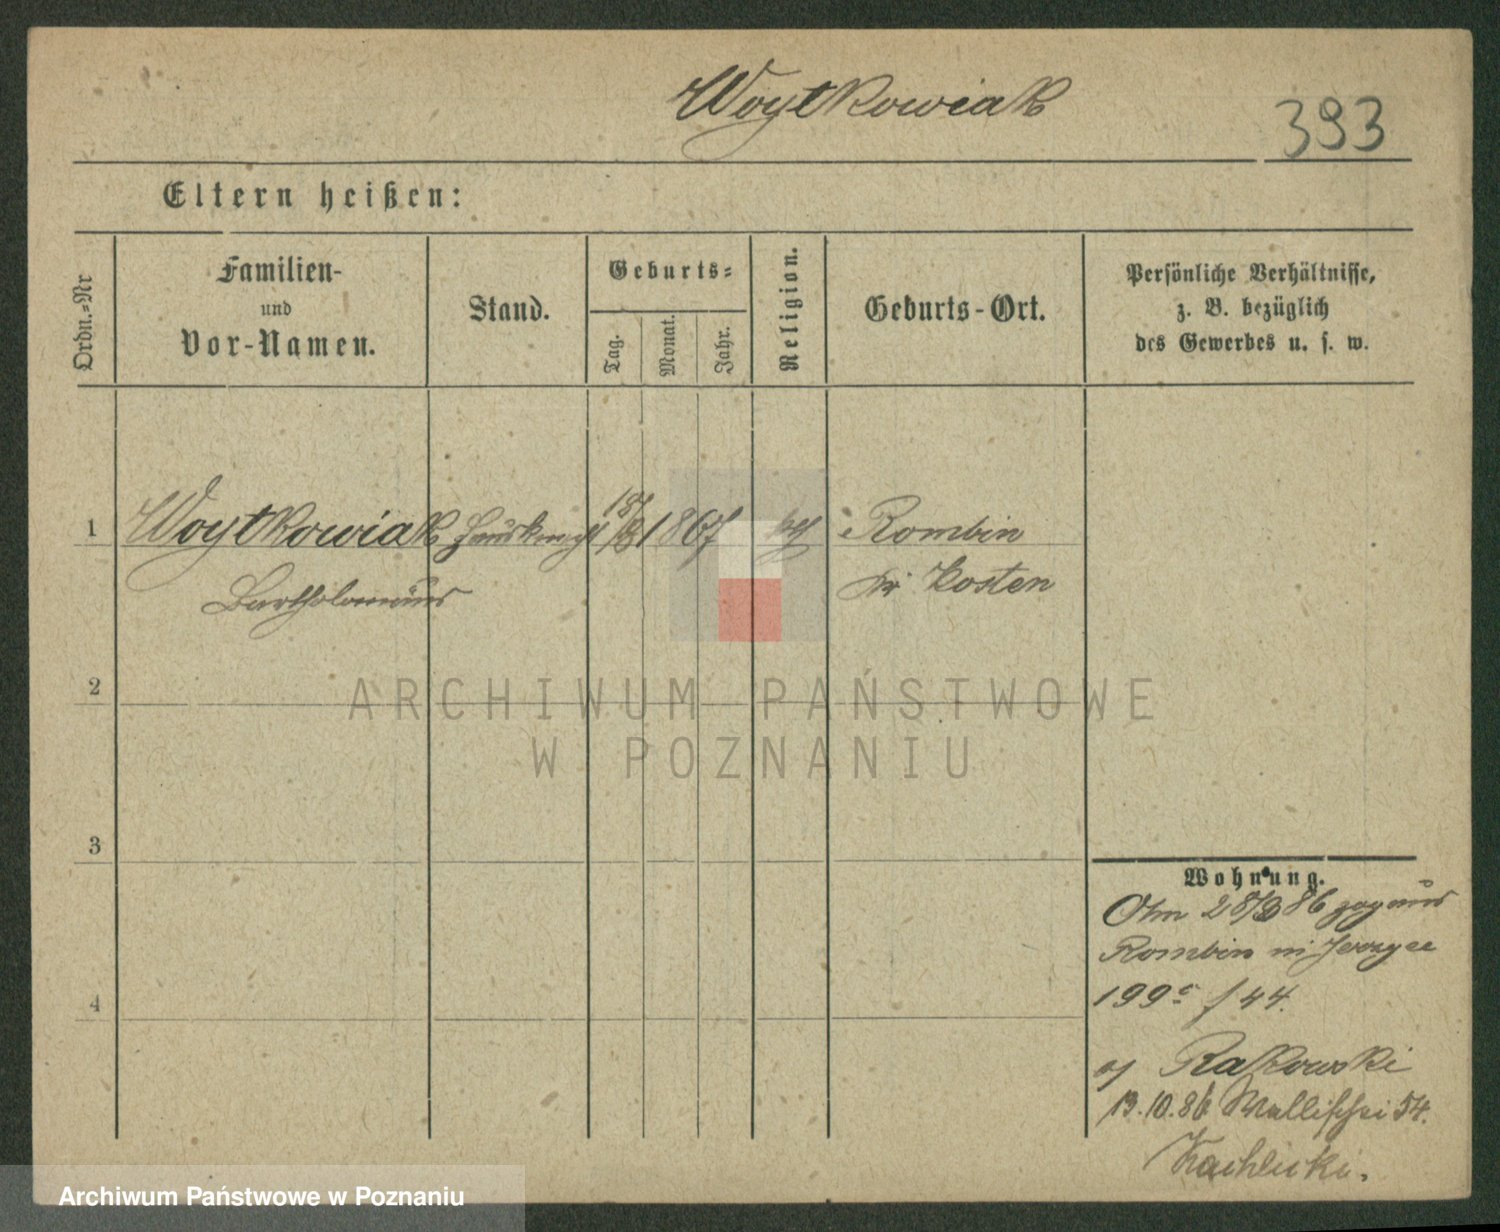 Woytkowiak
393
Eltern heißen:
Ordn.=Nr
Familien-
und
Vor-Namen.
Stand.
Geburts=
Tag.
Monat.
Jahr.
Religion.
Geburts-Ort.
Persönliche Verhältnisse,
z. B. bezüglich
des Gewerbes u. s. w.
1 Woytkowiak Hausknecht 18/8 1867 kth Rombin
Bartholomäus Kr Kosten
2
3
4
Wohnung.
28/9 86 aus
Rombin in
199 f 44.
Rakowski
13.10.86 Wallischei 54.
Kachlicki.
ARCHIWUM PAŃSTWOWE
W POZNANIU
Archiwum Państwowe w Poznaniu